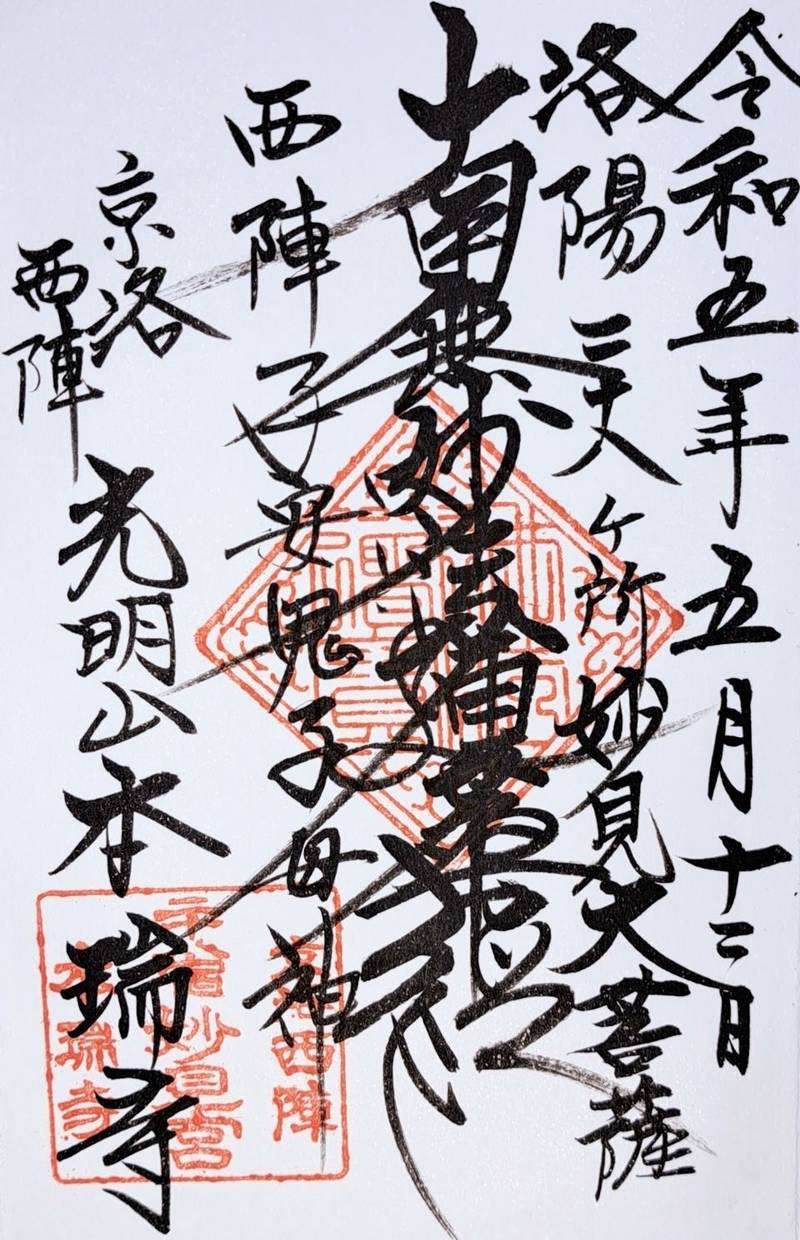 令和五年五月十二日
洛陽 ヶ所 妙見大菩薩
南無妙法蓮華経
西陣 子安鬼子母神
京洛
西陣
光明山本瑞寺
京洛西陣
妙見宮
本瑞寺